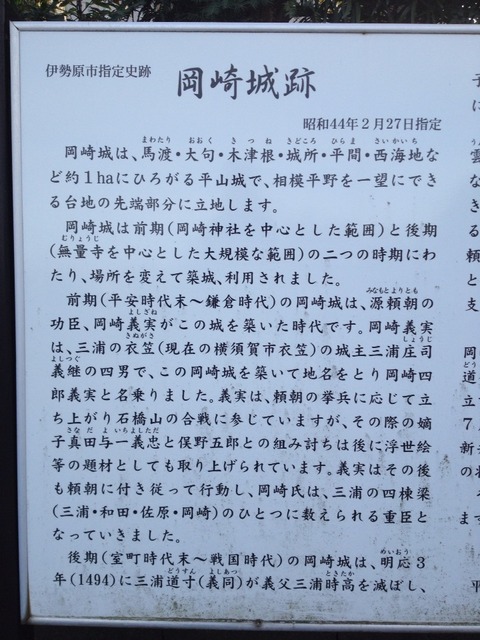 伊勢原市指定史跡
岡崎城跡
昭和44年2月27日指定
まわたり おおく きつね きどころ ひらま さいかいち
岡崎城は、馬渡・大句・木津根・城所・平間・西海地な
ど約1haにひろがる平山城で、相模平野を一望にでき
る台地の先端部分に立地します。
岡崎城は前期(岡崎神社を中心とした範囲)と後期
むりょうじ
(無量寺を中心とした大規模な範囲)の二つの時期にわ
たり、場所を変えて築城、利用されました。
みなもとよりとも
前期(平安時代末~鎌倉時代)の岡崎城は、源頼朝の
よしざね
功臣、岡崎義実がこの城を築いた時代です。岡崎義実
きぬがさ しょうじ
は、三浦の衣笠(現在の横須賀市衣笠)の城主三浦庄司
よしつぐ
義継の四男で、この岡崎城を築いて地名をとり岡崎四
郎義実と名乗りました。義実は、頼朝の挙兵に応じて立
ち上がり石橋山の合戦に参じていますが、その際の嫡
さなだよいちよしただ
子真田与一義忠と俣野五郎との組み討ちは後に浮世絵
等の題材としても取り上げられています。義実はその後
も頼朝に付き従って行動し、岡崎氏は、三浦の四棟梁
(三浦・和田・佐原・岡崎)のひとつに数えられる重臣と
なっていきました。
めいおう
後期(室町時代末~戦国時代)の岡崎城は、明応3
どうすん よしあつ ときたか
年(1494)に三浦道寸(義同)が義父三浦時高を滅ぼし、